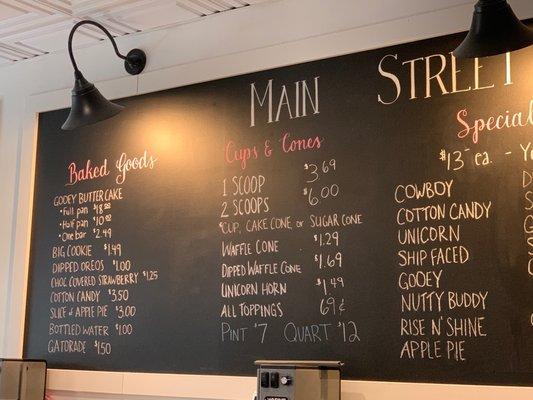 Main Street
Baked Goods
Gooey Butter Cake
• Full pan $18.99
• Half pan $10.92
• One bar $2.49
Big Cookie $1.49
Dipped Oreos $1.00
Choc Covered Strawberry $1.25
Cotton Candy $3.50
Slice of Apple Pie $3.00
Bottled Water $1.00
Gatorade $1.50
Cups & Cones
1 Scoop $3.69
2 Scoops $6.00
*Cup, Cake Cone, or Sugar Cone
Waffle Cone $1.29
Dipped Waffle Cone $1.69
Unicorn Horn $1.49
All Toppings 69¢
Pint $7 Quart $12
$13 ea. -
Cowboy
Cotton Candy
Unicorn
Ship Faced
Gooey
Nutty Buddy
Rise N' Shine
Apple Pie